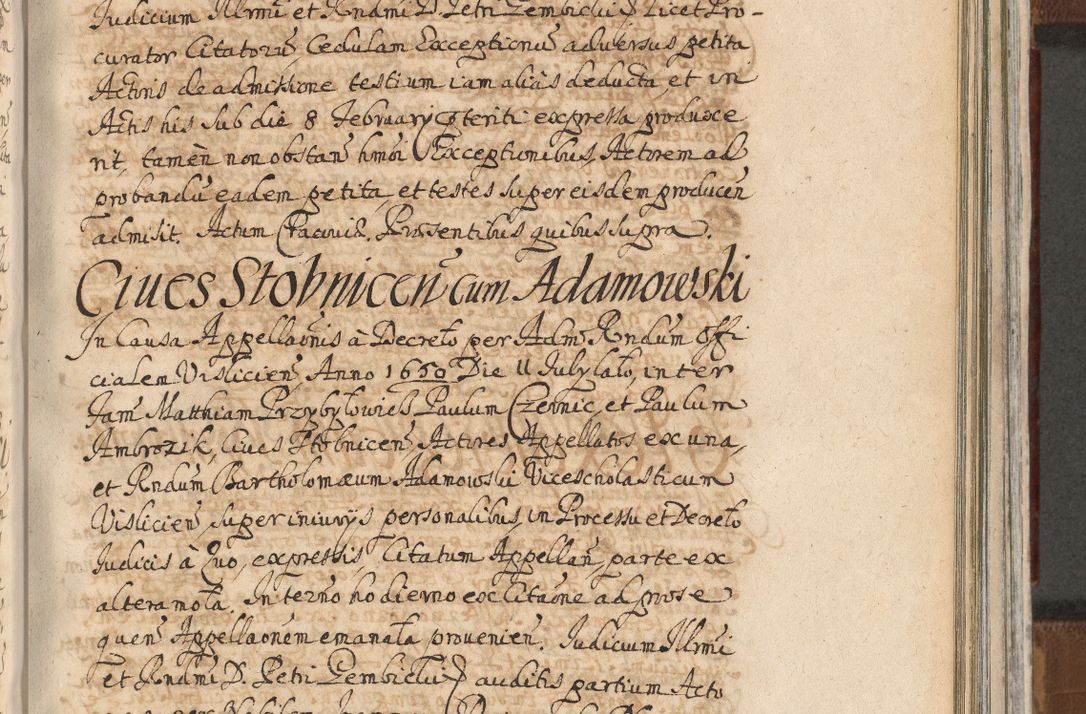 Judicium Illrmi et Rndmi D. Petri Gembicki Licet Pro-
curator Citatoris Cedulam Exceptionu adversus petita
Actoris de admissione testium iam alias deducta, et in
Actis his sub die 8 February pteriti expressa produxe
rit, tamen non obstan hmoi Exceptionibus, Actorem ad
probandu eadem petita, et testes super eisdem producen
admisit. Actum Cracoviæ. Præsentibus quibus supra.
Cives Stobnicen cum Adamowski
In Causa Appellaonis à Decreto per Adm Rndum Offi
cialem Vislicien, Anno 1650 Die 11 July lato, inter
Fam Matthiam Przybyłowicz Paulum Czernic, et Paulum
Ambrozik, Cives Stobnicen Actores Appellatos ex una,
et Rndum Bartholomæum Adamowski Vicescholasticum
Vislicien super iniuryis personalibus, in Processu et Decreto
Judicis à Quo, expressis Citatum Appellan, parte ex
altera mota. In termo hodierno ex Citaone ad prose
quen Appellaonem emanata provenien. Judicium Illrmi
et Rndmi D. Petri Gembicki auditis partium Acto